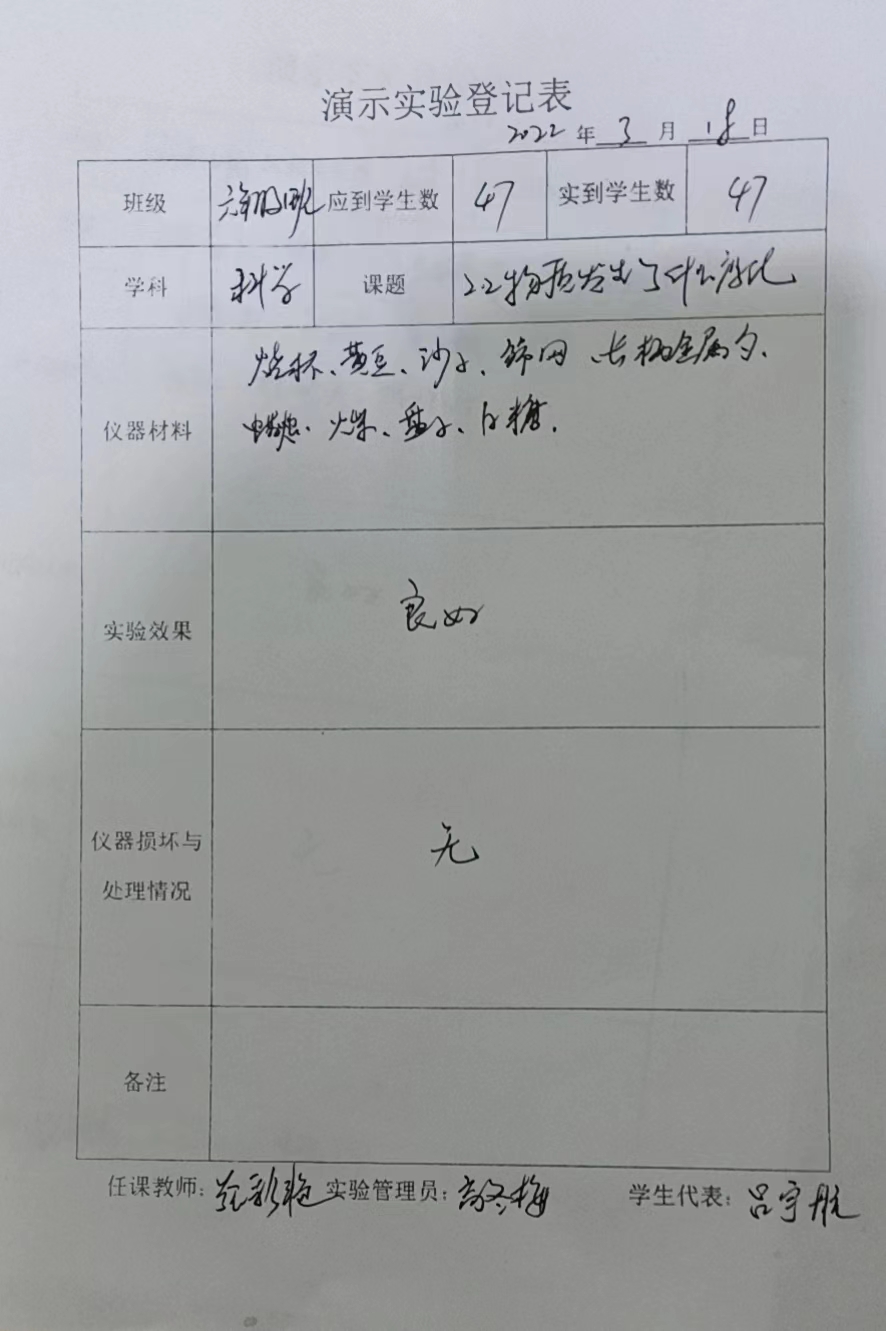 演示实验登记表
2022 年 3 月 18 日
班级 应到学生数 47 实到学生数 47
学科 科学 课题 2.2物质发生了什么变化
仪器材料 烧杯、黄豆、沙子、筛网、长柄金属勺、
蜡烛、火柴、盘子、白糖.
实验效果 良好
仪器损坏与 无
处理情况
备注
任课教师: 实验管理员: 学生代表: 吕宇航